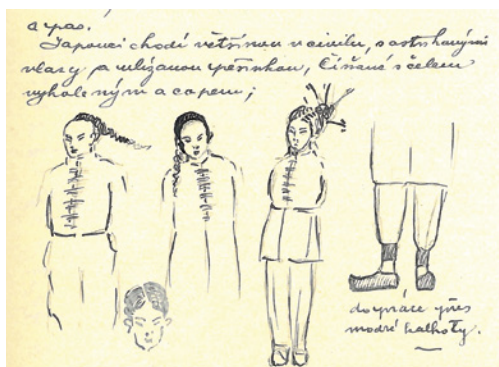 a pas.
Japonci chodí většinou v civilu, s ostříhanými
vlasy a ulízanou pěšinkou, Číňané s čelem
vyholeným a copem;
do práce přes
modré kalhoty.